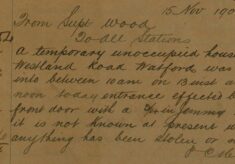 15 Nov 190
From Supt Wood
To all Stations
A temporary unoccupied hous
Westland Road Watford was
into between 10am on 13 inst a
noon today entrance effected b
front door with a Jemmy
it is not known at present w
anything has been stolen or